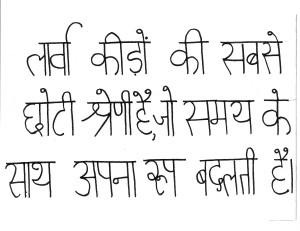 लार्वा कीड़ों की सबसे
छोटी श्रेणी है, जो समय के
साथ अपना रूप बदलती है।